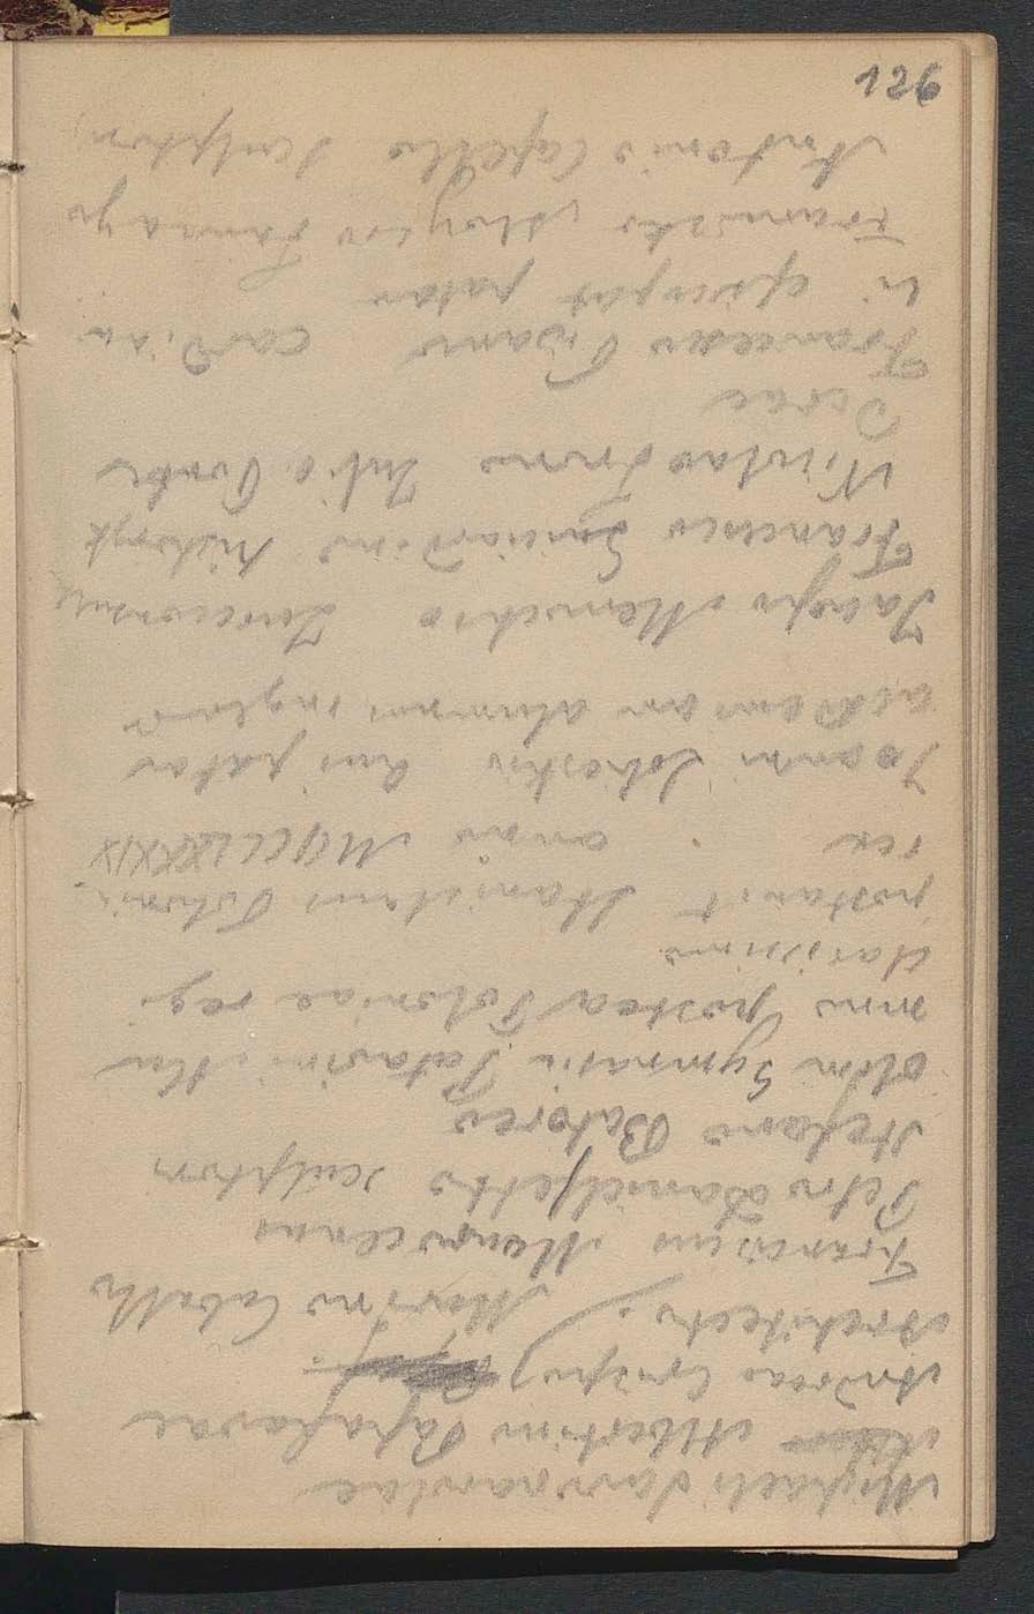 126
Michaeli Savonarolae
Albertino Papafavae
Andreas Crispus
Architecto. Marino Caballi
Franciscus Maurocenus
Petro Danieletto sculptori
Stefano Batoreo
olim Gymnasii Patavini Alu
mno postea Poloniae regi
clarissimo
Stanislaus Poloniae
rex anno MDCCLXXXIX
Joanni Sobieskio qui patav
academiam alumnus
Jacopo Menochio
Francesco Guicciardini historyk
Nicolao Trono Julio Conti
Ducae
Francesco Pisano cardina
li episcopat patav
Antonio Capello sculptori